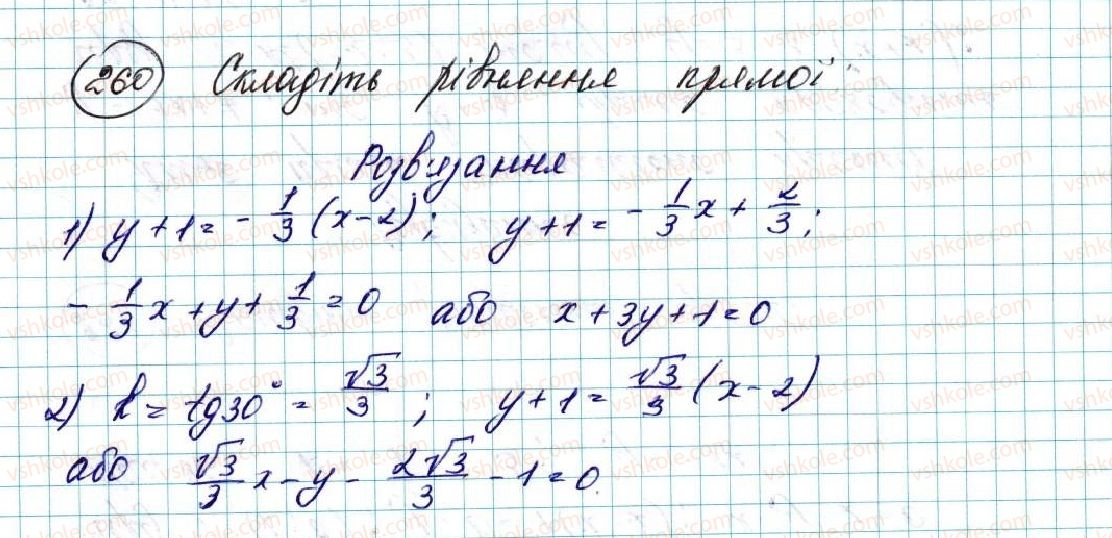 260 Складіть рівняння прямої.
Розв'язання
1) y + 1 = - 1/3 (x - 2); y + 1 = - 1/3 x + 2/3;
- 1/3 x + y + 1/3 = 0 або x + 3y + 1 = 0
2) k = tg30° = √3/3; y + 1 = √3/3 (x - 2)
або √3/3 x - y - 2√3/3 - 1 = 0.